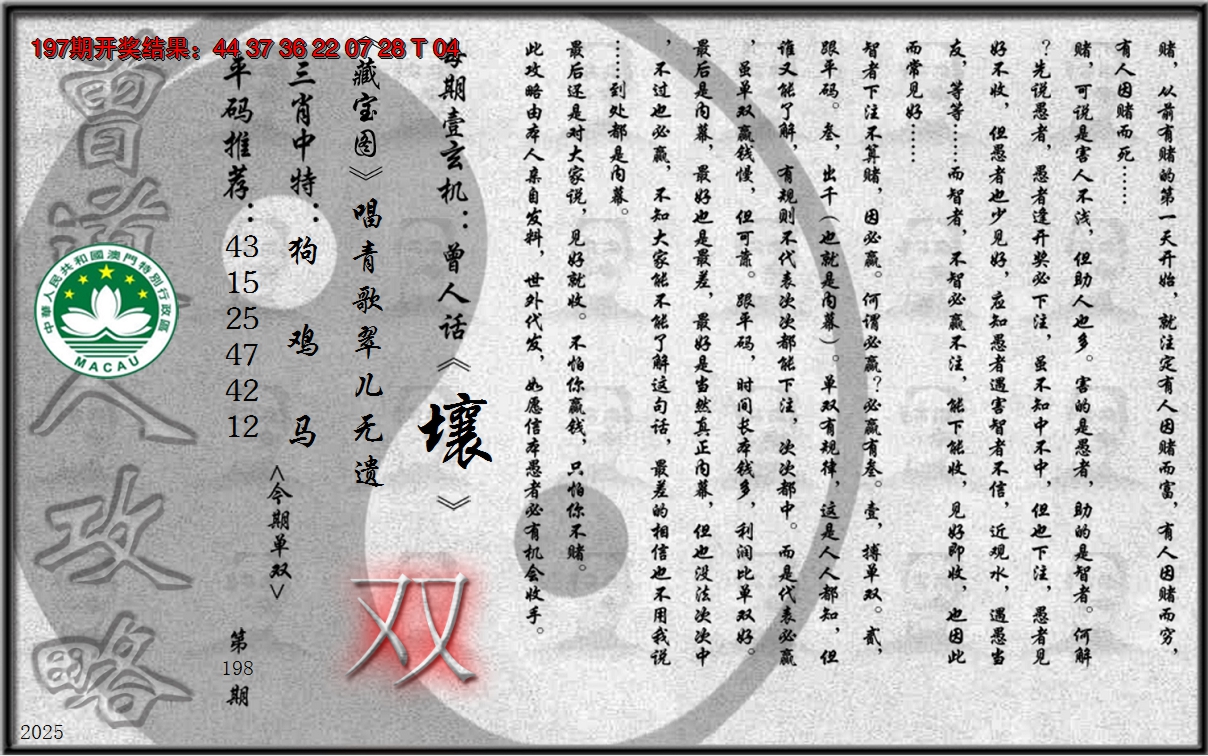 197期开奖结果：44 37 36 22 07 28 T 04
赌，从前有赌的第一天开始，就注定有人因赌而富，有人因赌而穷，
有人因赌而死……
赌，可说是害人不浅，但助人也多。害的是愚者，助的是智者。何解
？先说愚者，愚者逢开奖必下注，虽不知中不中，但也下注，愚者见
好不收，但愚者也少见好，应知愚者遇害智者不信，近观水，遇愚当
友，等等……而智者，不智必赢不注，能下能收，见好即收，也因此
而常见好……
智者下注不算赌，因必赢。何谓必赢？必赢有叁。壹，搏单双。贰，
跟平码。叁，出千（也就是内幕）。单双有规律，这是人人都知，但
谁又能了解，有规则不代表次次都能下注，次次都中。而是代表必赢
，虽单双赢钱慢，但可靠。跟平码，时间长本钱多，利润比单双好。
最后是内幕，最好也是最差，最好是当然真正内幕，但也没法次次中
，不过也必赢，不知大家能不能了解这句话，最差的相信也不用我说
……到处都是内幕。
最后还是对大家说，见好就收。不怕你赢钱，只怕你不赌。
此攻略由本人亲自发料，世外代发，如愿信本愚者必有机会收手。
每期壹玄机：曾人话《壤》
《藏宝图》唱青歌翠儿无遗
双
三肖中特：狗 鸡 马
<今期单双>
平码推荐：43 15 25 47 42 12
第198期
曾道人攻略
中華人民共和國澳門特別行政區
MACAU
2025